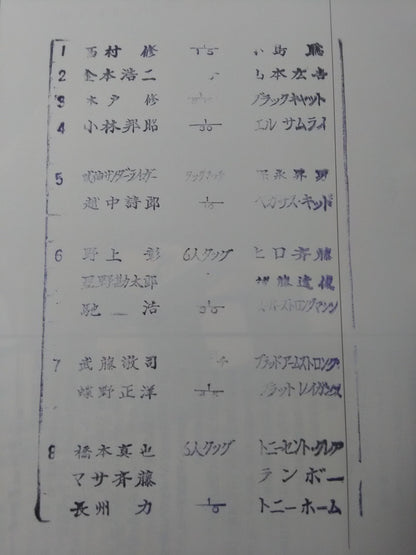 1 西村 修 1/15 小島 聡
2 金本浩二 山本宏吉
3 木戸 修 ブラックキャット
4 小林邦昭 1/30 エル サムライ
5 獣神サンダーライガー タッグマッチ
越中詩郎 ペガサス・キッド
6 野上 彰 6人タッグ ヒロ斉藤
星野勘太郎 後藤達俊
馳 浩 スーパーストロングマシン
7 武藤敬司 ブラッドアームストロング
蝶野正洋 ブラット レイガンズ
8 橋本真也 6人タッグ トニーセント・クレア
マサ斉藤 テンボー
長州 力 トニーホーム